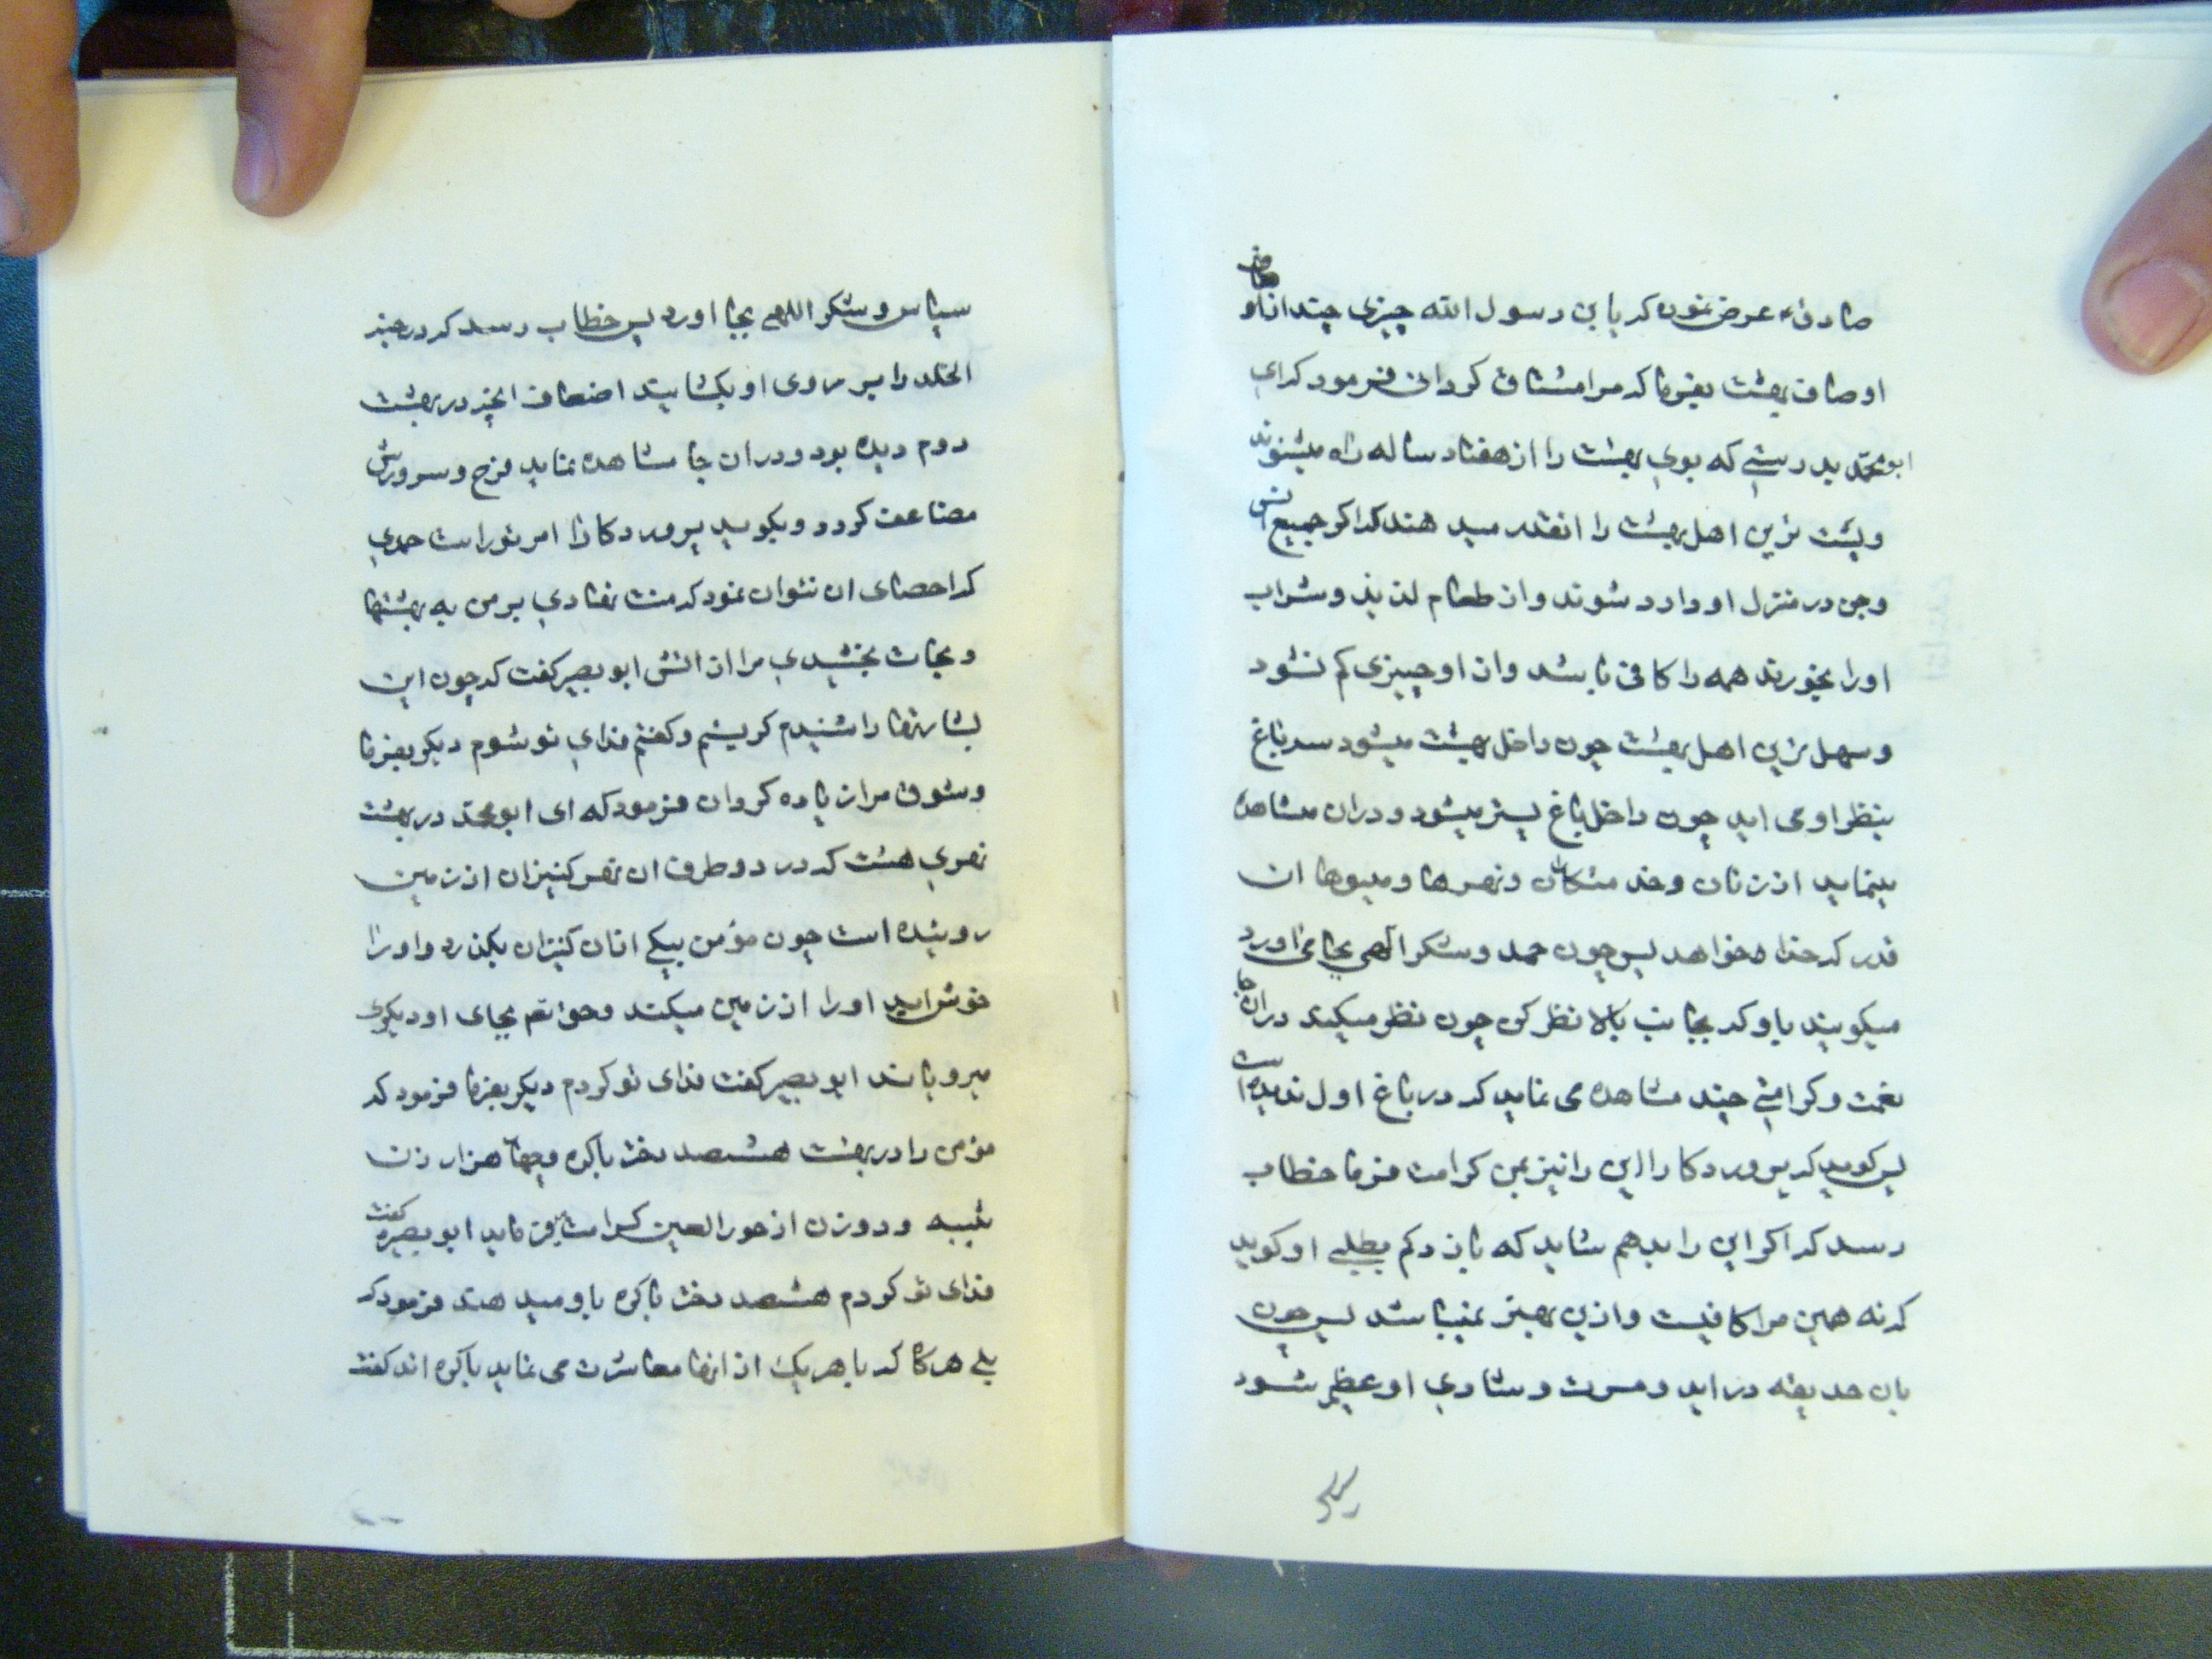 صادق ع عرض نمود که یا بن رسول الله چیزی چند از اوصاف
اوصاف بهشت بفرما که مرا مشتاق گردانی فرمود که ای
ابو محمد بدرستی که بوی بهشت را از هفتاد ساله راه میشنوند
و پست ترین اهل بهشت را انقدر میدهند که اگر جمیع انس
و جن در منزل او وارد شوند و از طعام لذیذ و شراب
او را بخورند همه را کافی باشد و از او چیزی کم نشود
و سهل ترین اهل بهشت چون داخل بهشت میشود سه باغ
بنظر او می اید چون داخل باغ پستر میشود و در ان مشاهده
مینماید از زنان و خدمتکاران و نهرها و میوها ان
قدر که خدا خواهد پس چون حمد و شکر الهی بجا می اورد
میگویند باو که بجانب بالا نظر کن چون نظر میکند در ان جا
نعمت و کرامتی چند مشاهده می نماید که در باغ اول ندیده است
پس گوید که پروردگارا این را نیز بمن کرامت فرما خطاب
رسد که اگر این را بدهم شاید که باز دیگر بطلبی او گوید
که نه همین مرا کافیست و ازین بهتر نمیباشد پس چون
بان حدیقه در اید و مسرت و شادی او عظیم شود
سپاس و شکر اللهی بجا اورد پس خطاب رسد که در جنة
الخلد را بر روی او بکشایند اضعاف انچه در بهشت
دوم دیده بود در ان جا مشاهده نماید فرح و سرورش
مضاعف گردد و بگوید پروردگارا امر تو راست حمدی
که احصای ان نتوان نمود که منت نهادی بر من به بهشتها
و نجات بخشیدی مرا از اتش ابو بصیر گفت که چون این
بشارتها را شنیدم گریستم و گفتم فدای تو شوم دیگر بفرما
و شوق مرا زیاده گردان فرمود که ای ابو محمد در بهشت
نهری هست که در دو طرف ان نهر کنیزان از زمین
روییده است چون مؤمن بیکی ازان کنیزان بگذرد و او را
خوش اید او را از زمین میکند و حق تعم بجای او دیگری
میرویاند ابو بصیر گفت فدای تو گردم دیگر بفرما فرمود که
مؤمن را در بهشت هشتصد دختر باکره و چهار هزار زن
ثیبه و دو زن از حور العین کرامت میفرماید ابو بصیر گفت
فدای تو گردم هشتصد دختر باکره باو میدهند فرمود که
بلی هر گاه که با هر یک از انها معاشرت می نماید باکره اند گفت